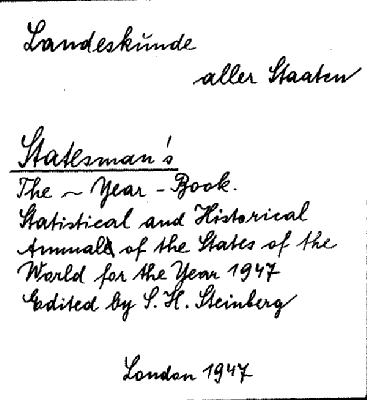 Landeskunde
aller Staaten
Statesman's
The ~ Year-Book.
Statistical and Historical
Annual of the States of the
World for the Year 1947
Edited by S. H. Steinberg
London 1947